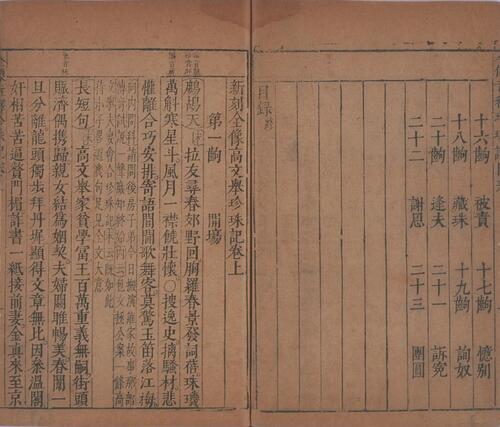 十六齣 被責 十七齣 憶別
十八齣 藏珠 十九齣 詢奴
二十齣 逢夫 二十一 訴冤
二十二 謝恩 二十三 團圓
目錄終
新刻全像高文舉珍珠記卷上
第一齣 開場
鷓鴣天 末 拉友尋春郊野回胸羅春景發詞借珠璣
萬斛寒星斗風月一襟饒壯懷○搜逸史摛騷材悲
懽離合巧安排寄語閒閒歌舞客莫驚玉笛落江梅
請問後房子弟今日搬演誰家故事那部
長短句 末 高文舉家貧學富王百萬重義無嗣街頭
賑濟偶携歸親女結為姻契夫婦關雎暢美春闈一
旦分離龍頭獨步拜丹墀顯得文章無比因參溫閣
奸相苦苦逼贅門楣詐書一紙接前妻金真來至京